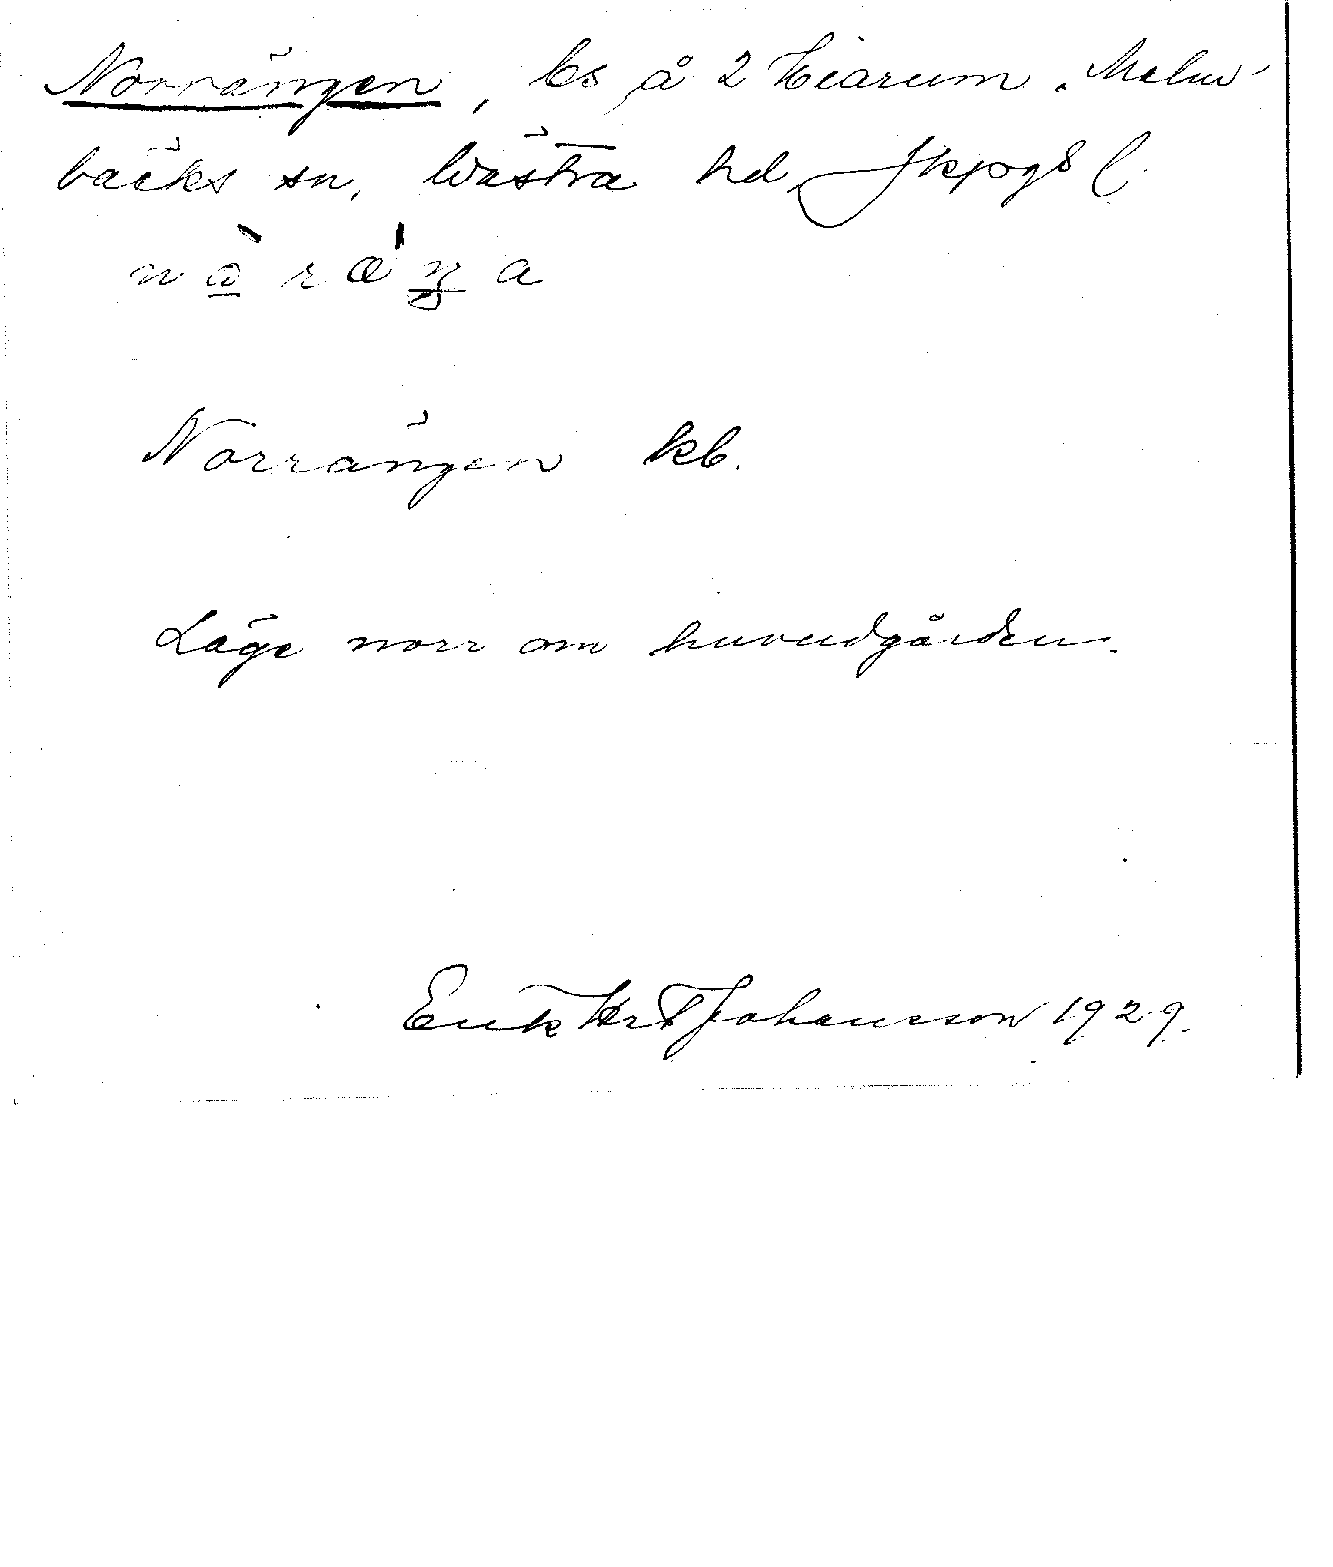 Norrängen, ls å 2 Hiarum. Malm-
bäcks sn, Västra hd, Jkpgs l.
Norrängen kb.
Läge norr om huvudgården.
Erik Johansson 1929.